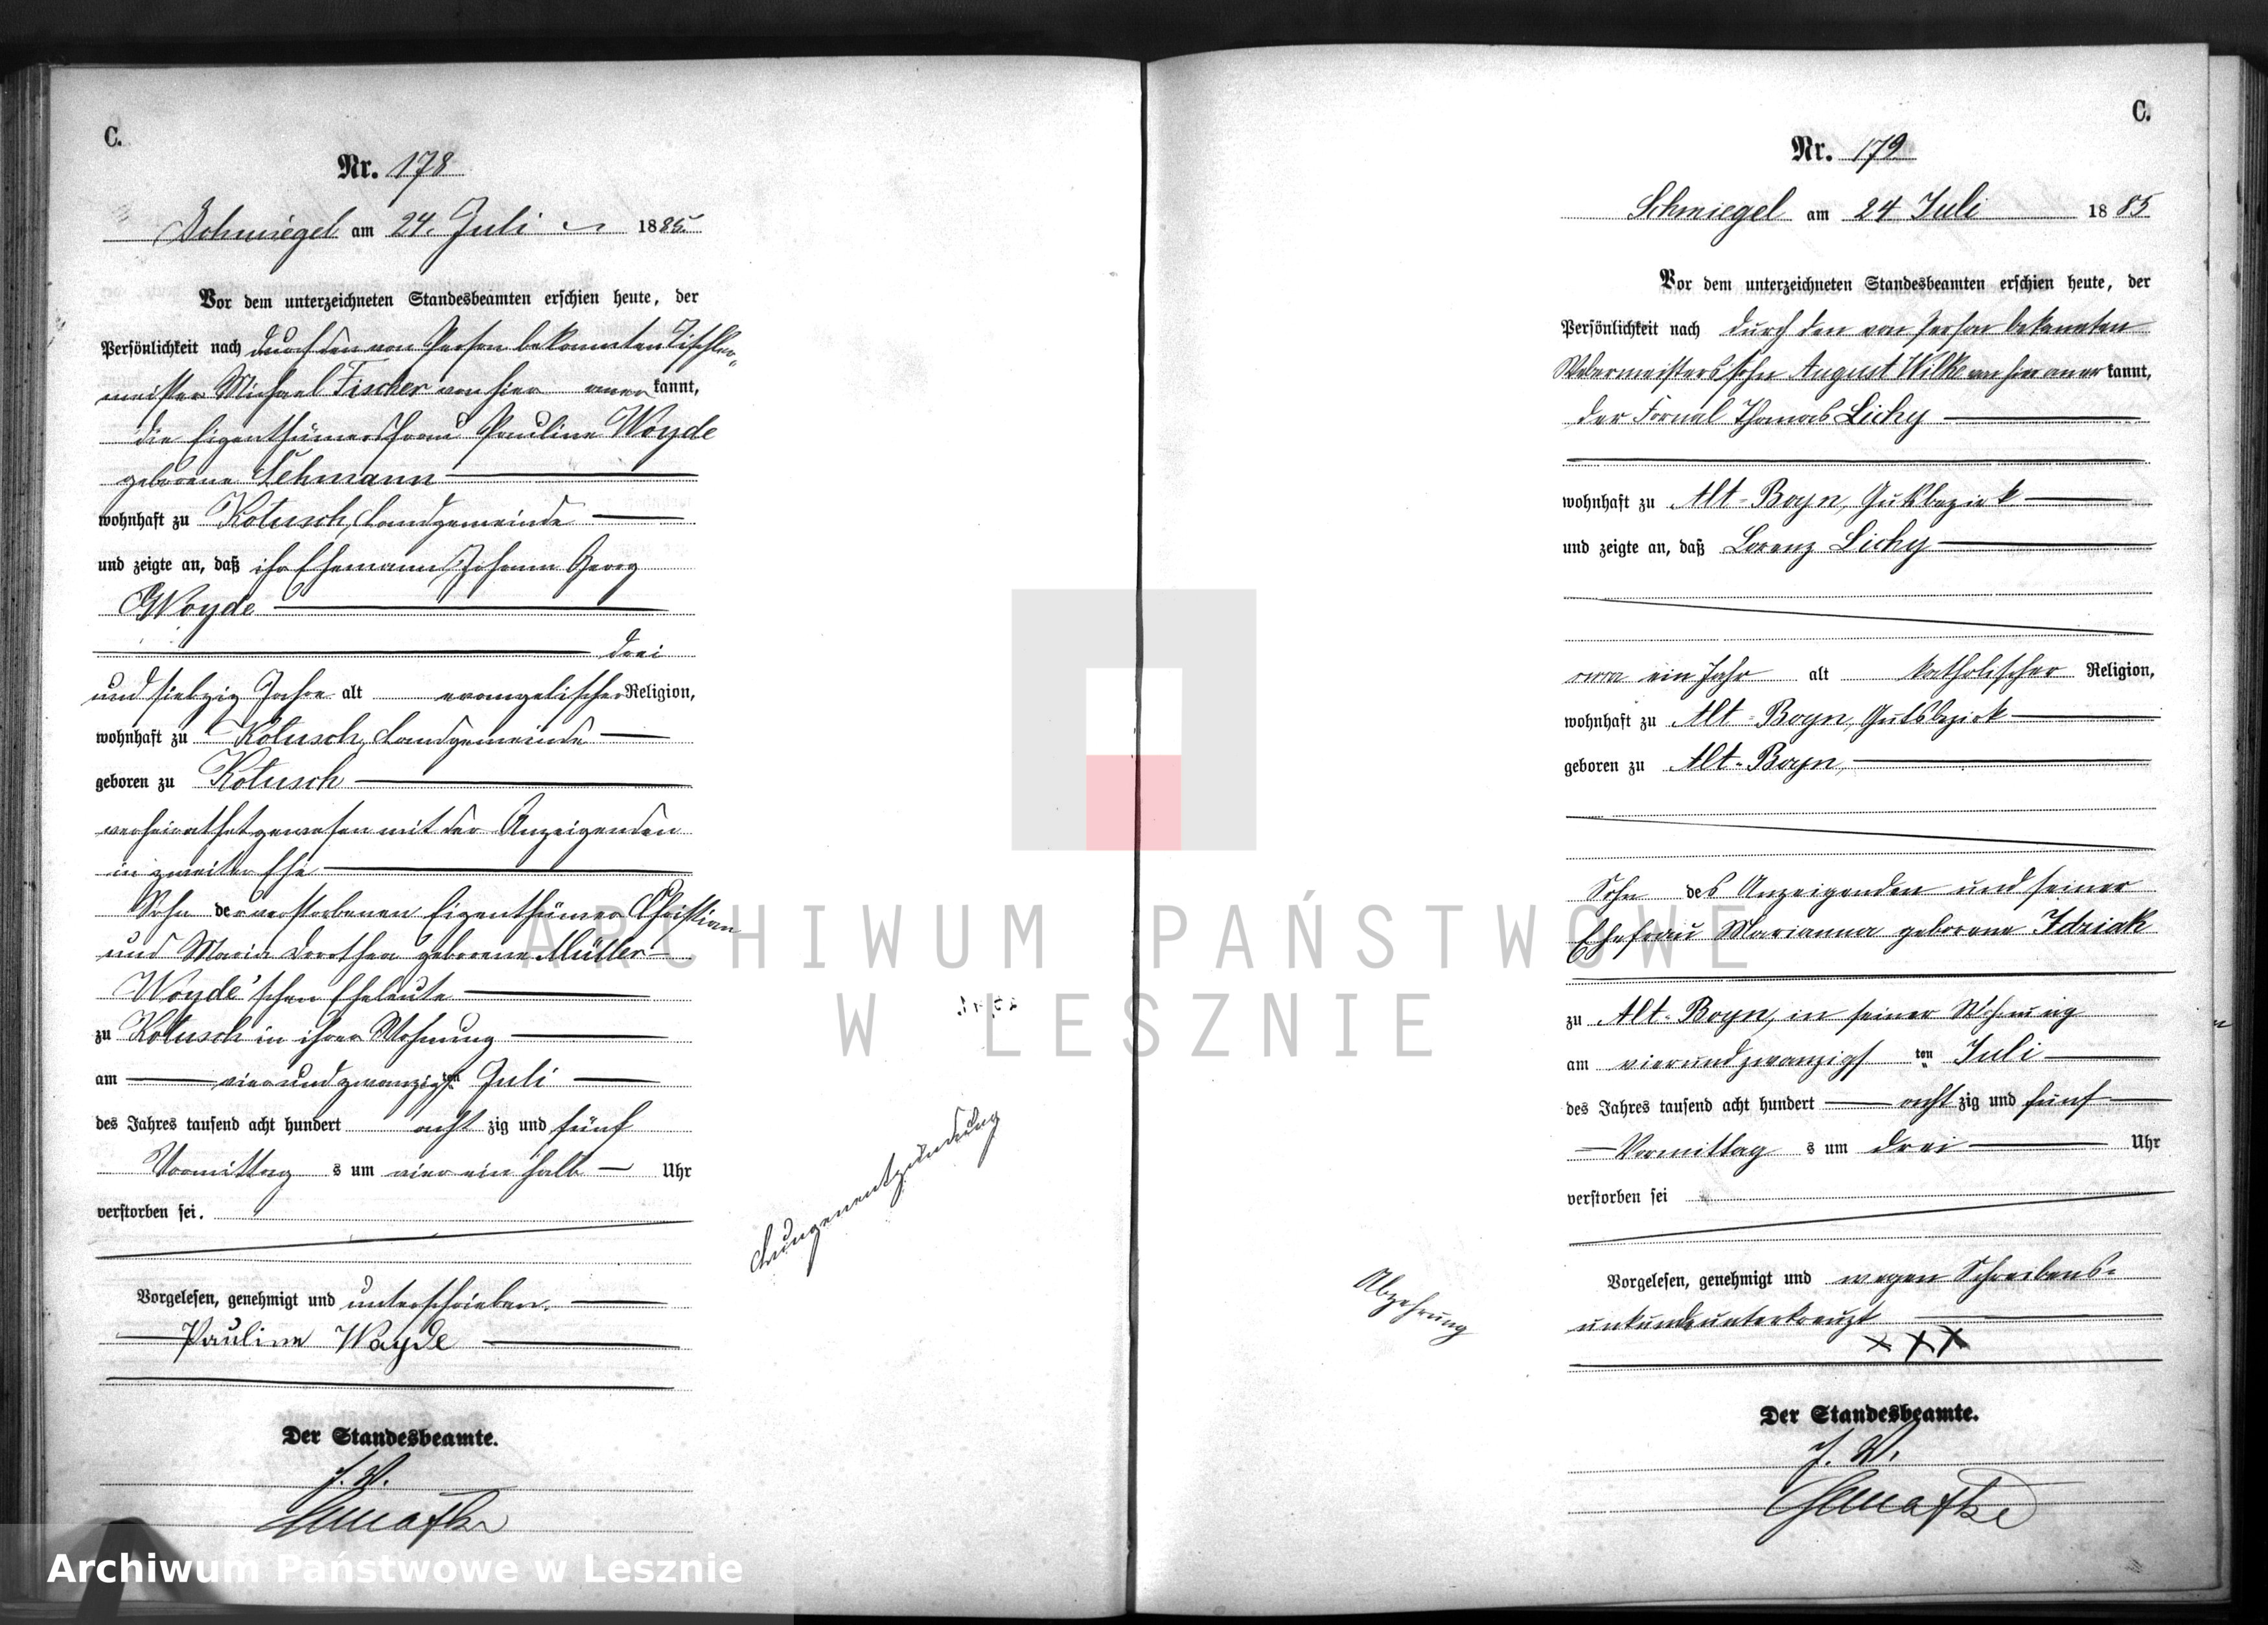 C.
Nr. 178
Schmiegel am 24. Juli 1885.
Vor dem unterzeichneten Standesbeamten erschien heute, der
Persönlichkeit nach durch den von Person bekannten Tischler-
meister Michael Fischer von hier anerkannt,
die Eigenthümersfrau Pauline Woyde
geborene Lehmann
wohnhaft zu Kotusch, Landgemeinde
und zeigte an, daß ihr Ehemann Johann Georg
Woyde
drei
und siebzig Jahre alt evangelischer Religion,
wohnhaft zu Kotusch, Landgemeinde
geboren zu Kotusch
verheirathet gewesen mit der Anzeigenden
in zweiter Ehe
Sohn der verstorbenen Eigenthümer Christian
und Maria Dorothea geborene Müller
Woyde'schen Eheleute
zu Kotusch in ihrer Wohnung
am vierundzwanzigsten Juli
des Jahres tausend acht hundert achtzig und fünf
Vormittags um vier ein halb Uhr
verstorben sei.
Vorgelesen, genehmigt und unterschrieben.
Pauline Woyde
Der Standesbeamte.
J. V.
Lungenentzündung
C.
Nr. 179
Schmiegel am 24 Juli 1885
Vor dem unterzeichneten Standesbeamten erschien heute, der
Persönlichkeit nach durch den von Person bekannten
Webermeisterssohn August Wilke von hier anerkannt,
der Fornal Thomas Lichy
wohnhaft zu Alt-Boyn, Gutsbezirk
und zeigte an, daß Lorenz Lichy
ein Jahr alt katholischer Religion,
wohnhaft zu Alt-Boyn, Gutsbezirk
geboren zu Alt-Boyn,
Sohn des Anzeigenden und seiner
Ehefrau Marianna geborene Idziak
zu Alt-Boyn, in seiner Wohnung
am vierundzwanzigsten Juli
des Jahres tausend acht hundert achtzig und fünf
Vormittags um drei Uhr
verstorben sei
Vorgelesen, genehmigt und wegen Schreibens-
unkunde unterkreuzt
XXX
Der Standesbeamte.
J. V.
Abzehrung
ARCHIWUM PAŃSTWOWE
W LESZNIE
Archiwum Państwowe w Lesznie